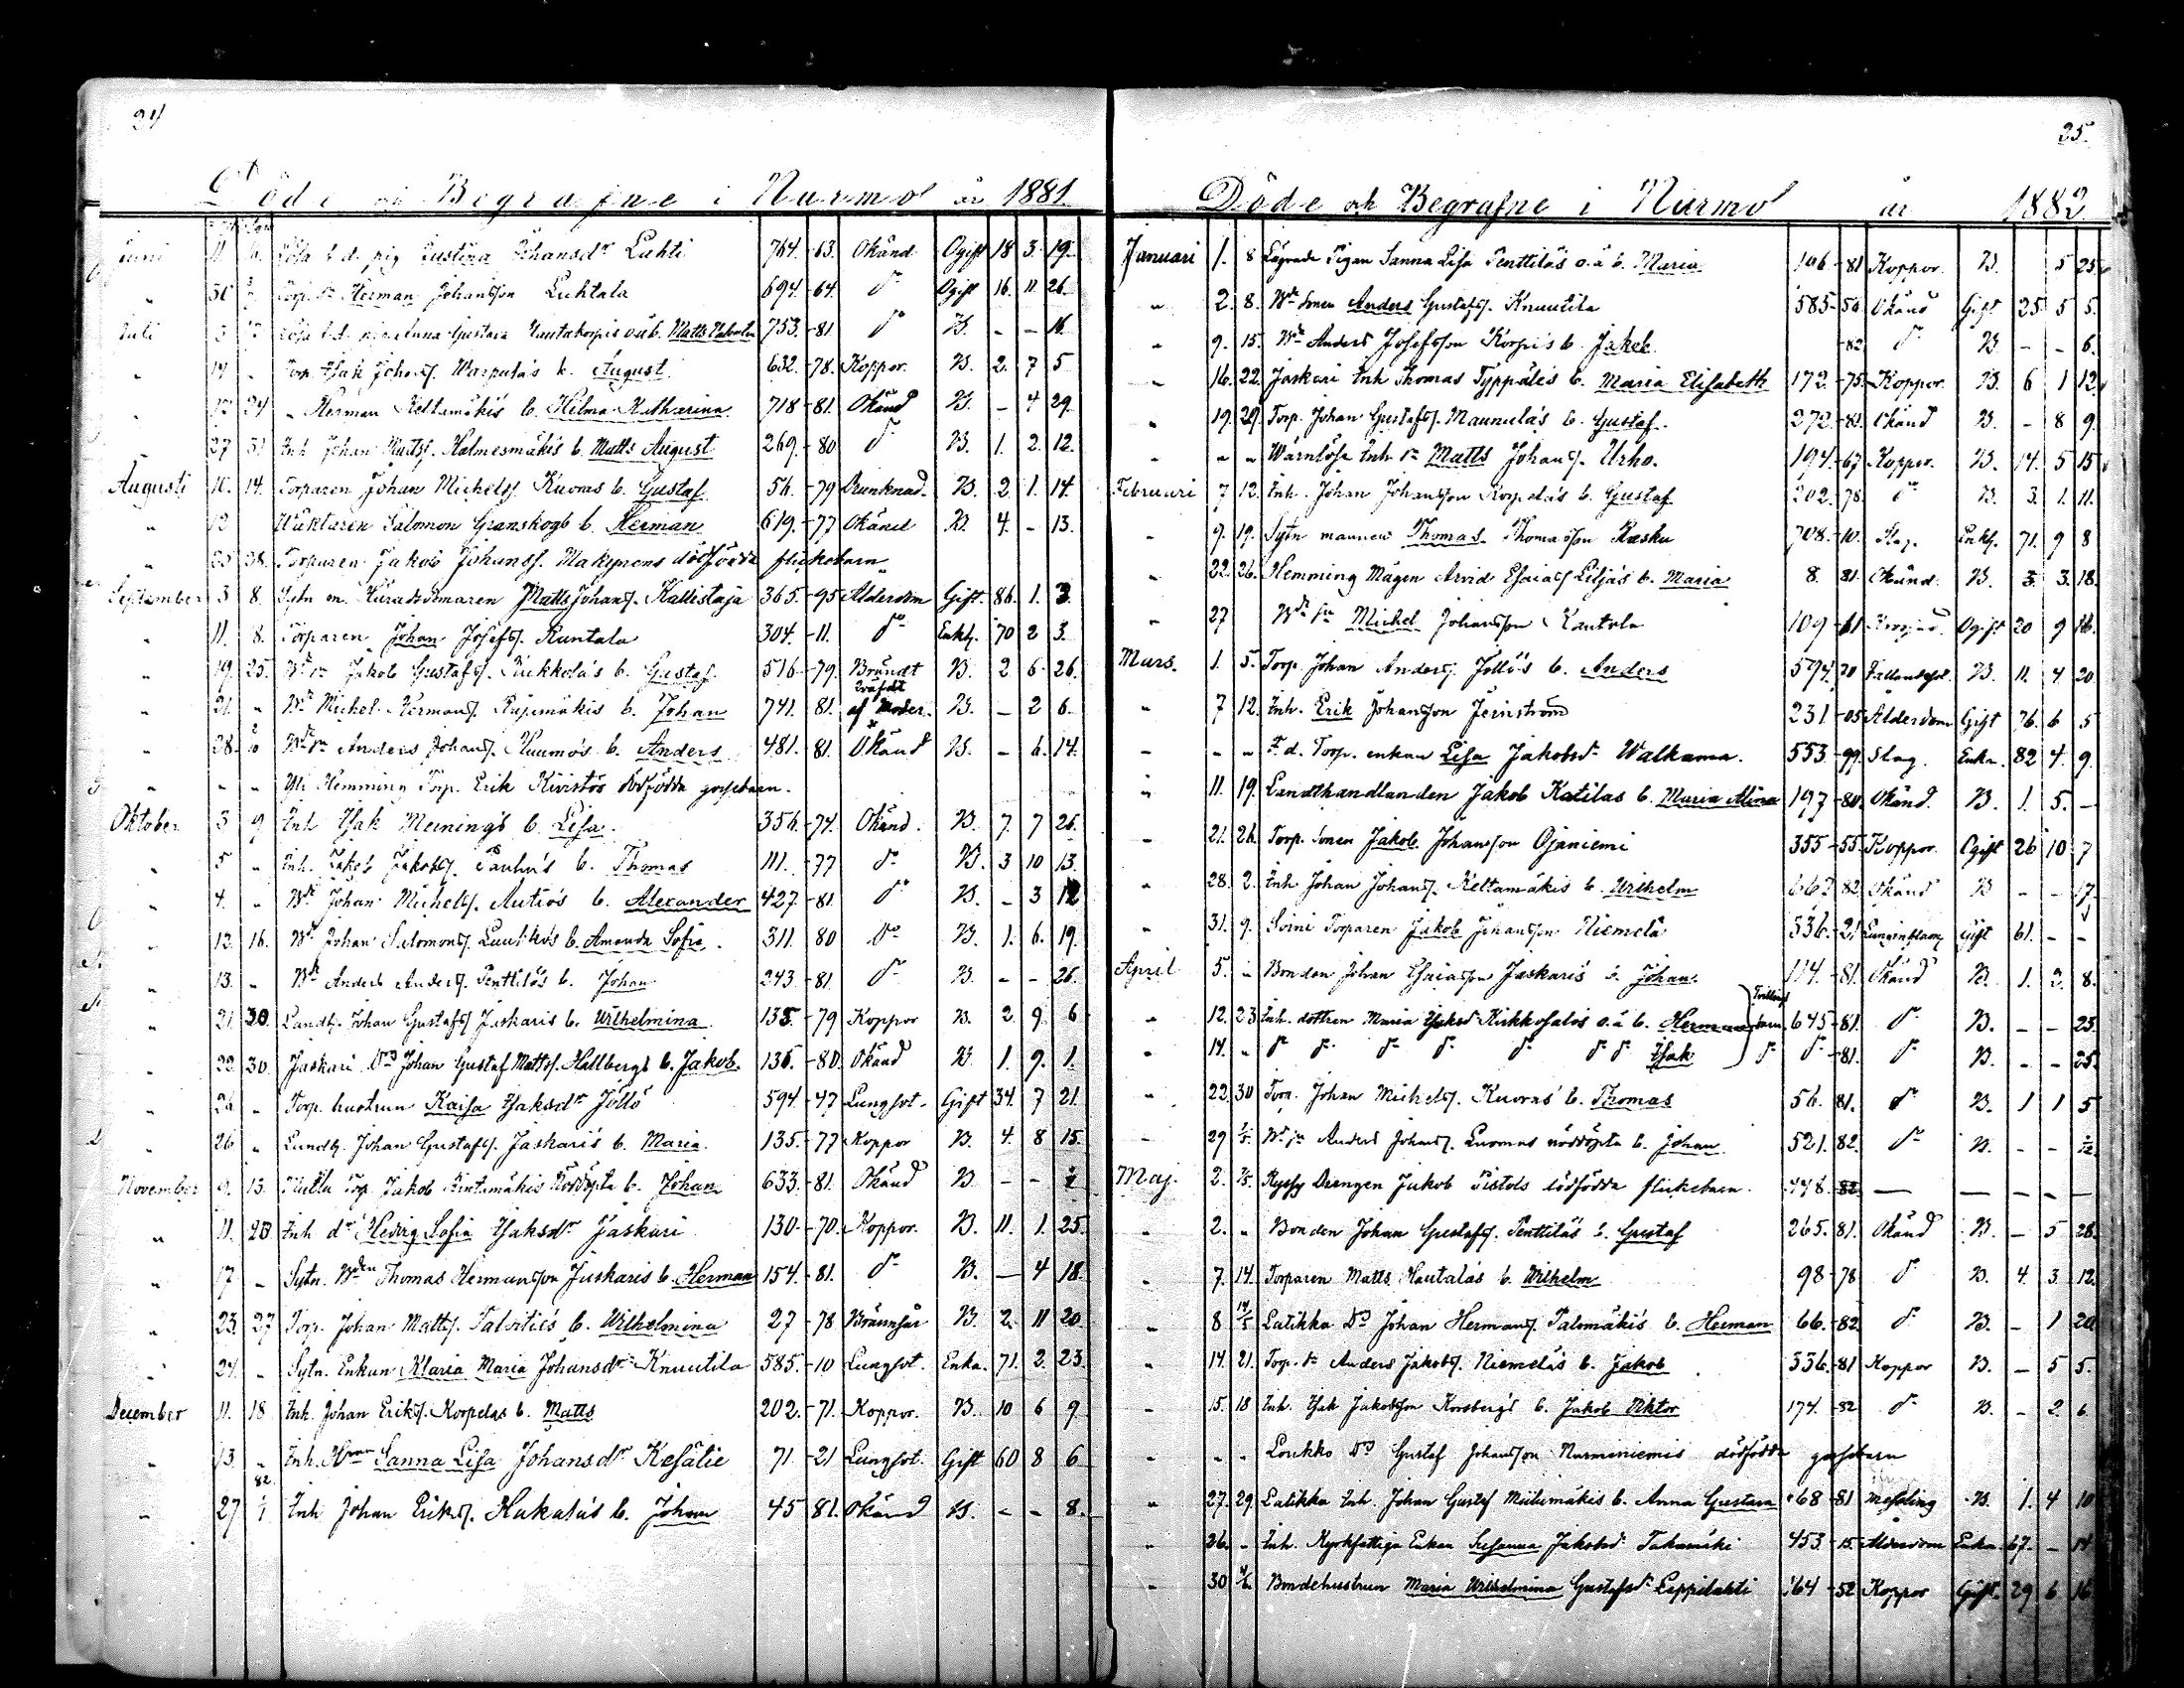 24
Döde och Begrafne i Nurmo år 1881.
Juni 11 d. pig Justina Johansdr Luhti 764. -63. Okänd Ogift 18 3. 19.
" Torp. Herman Johansson Luhtala 694. -64. do Ogift 16. 11 26.
Juli 3 Gustava Rautakorpis o.ä b. Matts 753. -81 do B. - - 16.
" 14 " Torp. Isak Johans. Warpula's b. August 632. -78. Koppor. B. 2. 7 5
" 24 " Herman Keltamäkis b. Hilma Katharina 718 -81. Okänd B. - 4 29.
" 27 31 Inh. Johan Matts. Halmesmäkis b. Matts August 269. -80 do B. 1. 2. 12.
Augusti 10. 14. Torparen Johan Michels. Kuoras b. Gustaf 56. -79 B. 2. 1. 14.
" 12 Wäktaren Salomon Granskogs b. Herman 619. -77 Okänd B. 4. - 13.
" 25 28. Torparen Jakob Johans. Makynens dödfödda flickebarn
September 3 8. Sytn. m. Häradsdomaren Matts Johans. Kallistaja 365. -95 Ålderdom Gift. 86. 1. 3.
" 11. 8. Torparen Johan Josefs. Rantala 304. -11. do Enkl. 70 2 3.
" 19. 25. Bde sn Jakob Gustafs. Luckkola's b. Gustaf. 516 -79. Brändt B. 2 6. 26.
" 21. " Bde Michel Hermans. Rajamäkis b. Johan 741. 81. qväfdt af Moder. B. - 2 6.
" 28. Bde sn Anders Johans. Kuumos b. Anders 481. 81. Okänd B. - 6. 14.
" " " Yli Hemming Torp. Erik Kivistös dödfödda gossebarn.
Oktober 3 9 Inh Isak Meinings b. Lisa. 356. -74. Okänd. B. 7. 7 26.
" 5 " Inh. Jakob Jakobs. b. Thomas 111. -77 do B. 3 10 13.
" 4. " Bde Johan Michels. Autios b. Alexander 427. -81. do B. - 3 12
" 12. 16. Bde Johan Salomons. Luukkos b. Amanda Sofia. 311. 80 do B. 1. 6. 19.
" 13. " Bde Anders Anders. Penttiläs b. Johan 243 -81. do B. - - 26.
" 21. 30. Landb. Johan Gustafs. Jaskaris b. Wilhelmina 135. -79 Koppor B. 2. 9. 6
" 22. 30. Jaskari Johan Gustaf Matts. Hallbergs b. Jakob. 136. -80. Okänd B. 1. 9. 1.
" 26 " Torp. hustrun Kaisa Isaksdr Jöllö 594. -47 Lungsot. Gift 34. 7 21.
" 26 " Landb. Johan Gustafs. Jaskaris b. Maria. 135. -77 Koppor B. 4. 8 15.
November 9. 13. Torp. Jakob Rintamäkis nöddöpta b. Johan 633. -81. Okänd B. - -
" 11. 20. Inh dr Hedvig Sofia Isaksdr Jaskari 130. -70. Koppor. B. 11. 1. 25.
" 17 " Sytn. Bden Thomas Hermansson Jaskaris b. Herman 154. -81. do B. - 4 18.
" 23. 27 Torp. Johan Matts. Talvities b. Wilhelmina 27 -78 B. 2. 11 20.
" 24. " Sytn. Enkan Klaria Maria Johansdr Knuutila 585. -10 Lungsot. Enka. 71. 2. 23.
December 11. 18 Inh. Johan Eriks. Korpelas b. Matts 202. -71. Koppor. B. 10 6 9
" 13. " Inh. Sanna Lisa Johansdr Kesälie 71 -21 Lungsot. Gift 60 8 6
" 27 Inh Johan Eriks. Hakalas b. Johan 45 81. Okänd B. - - 8.
25.
Döde och Begrafne i Nurmo år 1882
Januari 1. 8 Lägrade Pigan Sanna Lisa Penttiläs o.ä b. Maria 106. -81 Koppor. B. 5 25
" 2. 8. Bde sonen Anders Gustafs. Knuutila 585. -56 Okänd Gift 25 5 5.
" 9. 15. Bde Anders Josefsson Korpis b. Jakob. -82 do B. - - 6.
" 16. 22. Jaskari Inh Thomas Typpäles b. Maria Elisabeth 172. -75. Koppor. B. 6 1 12.
" 19. 29. Torp. Johan Gustafs. Maunulas b. Gustaf. 272. -81. Okänd B. - 8 9.
" " " Wärnlösa Inh. sn Matts Johans. Urho. 194. -67 Koppor. B. 14. 5 15
Februari 7 12. Inh. Johan Johansson Korpelas b. Gustaf 202. -78. do B. 3. 1. 11.
" 9. 19. Sytn mannen Thomas Thomasson Kasku 708. -10. Slag. Enkl. 71. 9 8
" 22. 26. Hemming Mågen Arvid Esaias Liljas b. Maria 8. 81. Okänd. B. 3. 18.
" 27 Bde sn Michel Johansson Rantala 109 -61 Ogift 20 9 16.
Mars. 1. 5. Torp. Johan Anders. Jöllös b. Anders 594. 70 Fallandesot. B. 11. 4 20
" 7 12. Inh. Erik Johansson Jernström 231. -05 Ålderdom Gift 76. 6 5
" " " F.d. Torp. enkan Lisa Jakobsdr Walkama. 553. -99. Slag. Enka. 82 4. 9.
" 11. 19. Landthandlanden Jakob Katilas b. Maria Alina 197 -80. Okänd. B. 1. 5. -
" 21. 26. Torp. sonen Jakob Johansson Ojaniemi 355 -55. Koppor. Ogift 26 10 7
" 28. 2. Inh Johan Johans. Keltamäkis b. Wilhelm 662 82. Okänd B - - 17.
" 31. 9. Soini Torparen Jakob Johansson Niemelä 336. -21 Lunginflam Gift 61. - -
April 5. " Bonden Johan Esaiasson Jaskaris b. Johan. 114. -81. Okänd B. 1. 2. 8.
" 12. 23 Inh. dottren Maria Isaksd. Kirkkosalos o.ä b. Herman Tvillingbarn 645 -81. do B. - - 23.
" 14. " do do do do do do do Isak do do -81. do B. - - 25.
" 22. 30 Torp. Johan Michels. Kuoras b. Thomas 56. 81. do B. 1 1 5
" 29 1/5. Bde sn Anders Johans. Luomas nöddöpta b. Johan 521. 82. do B. - - 1/12
Maj. 2. 7/5. Ryssy Drengen Jakob Pistols dödfödda flickebarn. 448. -82 — — — — —
" 2. " Bonden Johan Gustafs. Penttiläs b. Gustaf 265. 81. Okänd B. - 5 28.
" 7. 14. Torparen Matts Hautalas b. Wilhelm 98 -78 do B. 4. 3. 12.
" 8 14/5 Latikka Johan Hermans. Palomäkis b. Herman 66. -82. do B. - 1 20.
" 14. 21. Torp. sn Anders Jakobs. Niemeläs b. Jakob 336. -81 Koppor B. - 5 5.
" 15. 18 Inh. Isak Jakobsson Korsbergs b. Jakob Viktor 174. -82 do B. - 2. 6.
" " " Loukko Gustaf Johansson Nurminiemis dödfödda gossebarn
" 27. 29. Latikka Inh. Johan Gustaf b. Anna Gustava 68 -81 Messling B. 1. 4 10
" 26. " Inh. Kyrkfattiga Enkan Susanna Jakobsd. 453 -15. Ålderdom Enka 67. - 14
" 30 4/6. Bondehustrun Maria Wilhelmina Gustafsd. Leppilahti 164 -52 Koppor Gift. 29 6 16